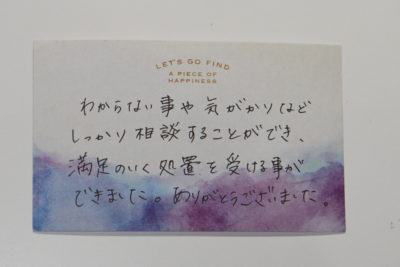 LET'S GO FIND
A PIECE OF
HAPPINESS
わからない事や気がかりなど
しっかり相談することができ、
満足のいく処置を受ける事が
できました。ありがとうございました。